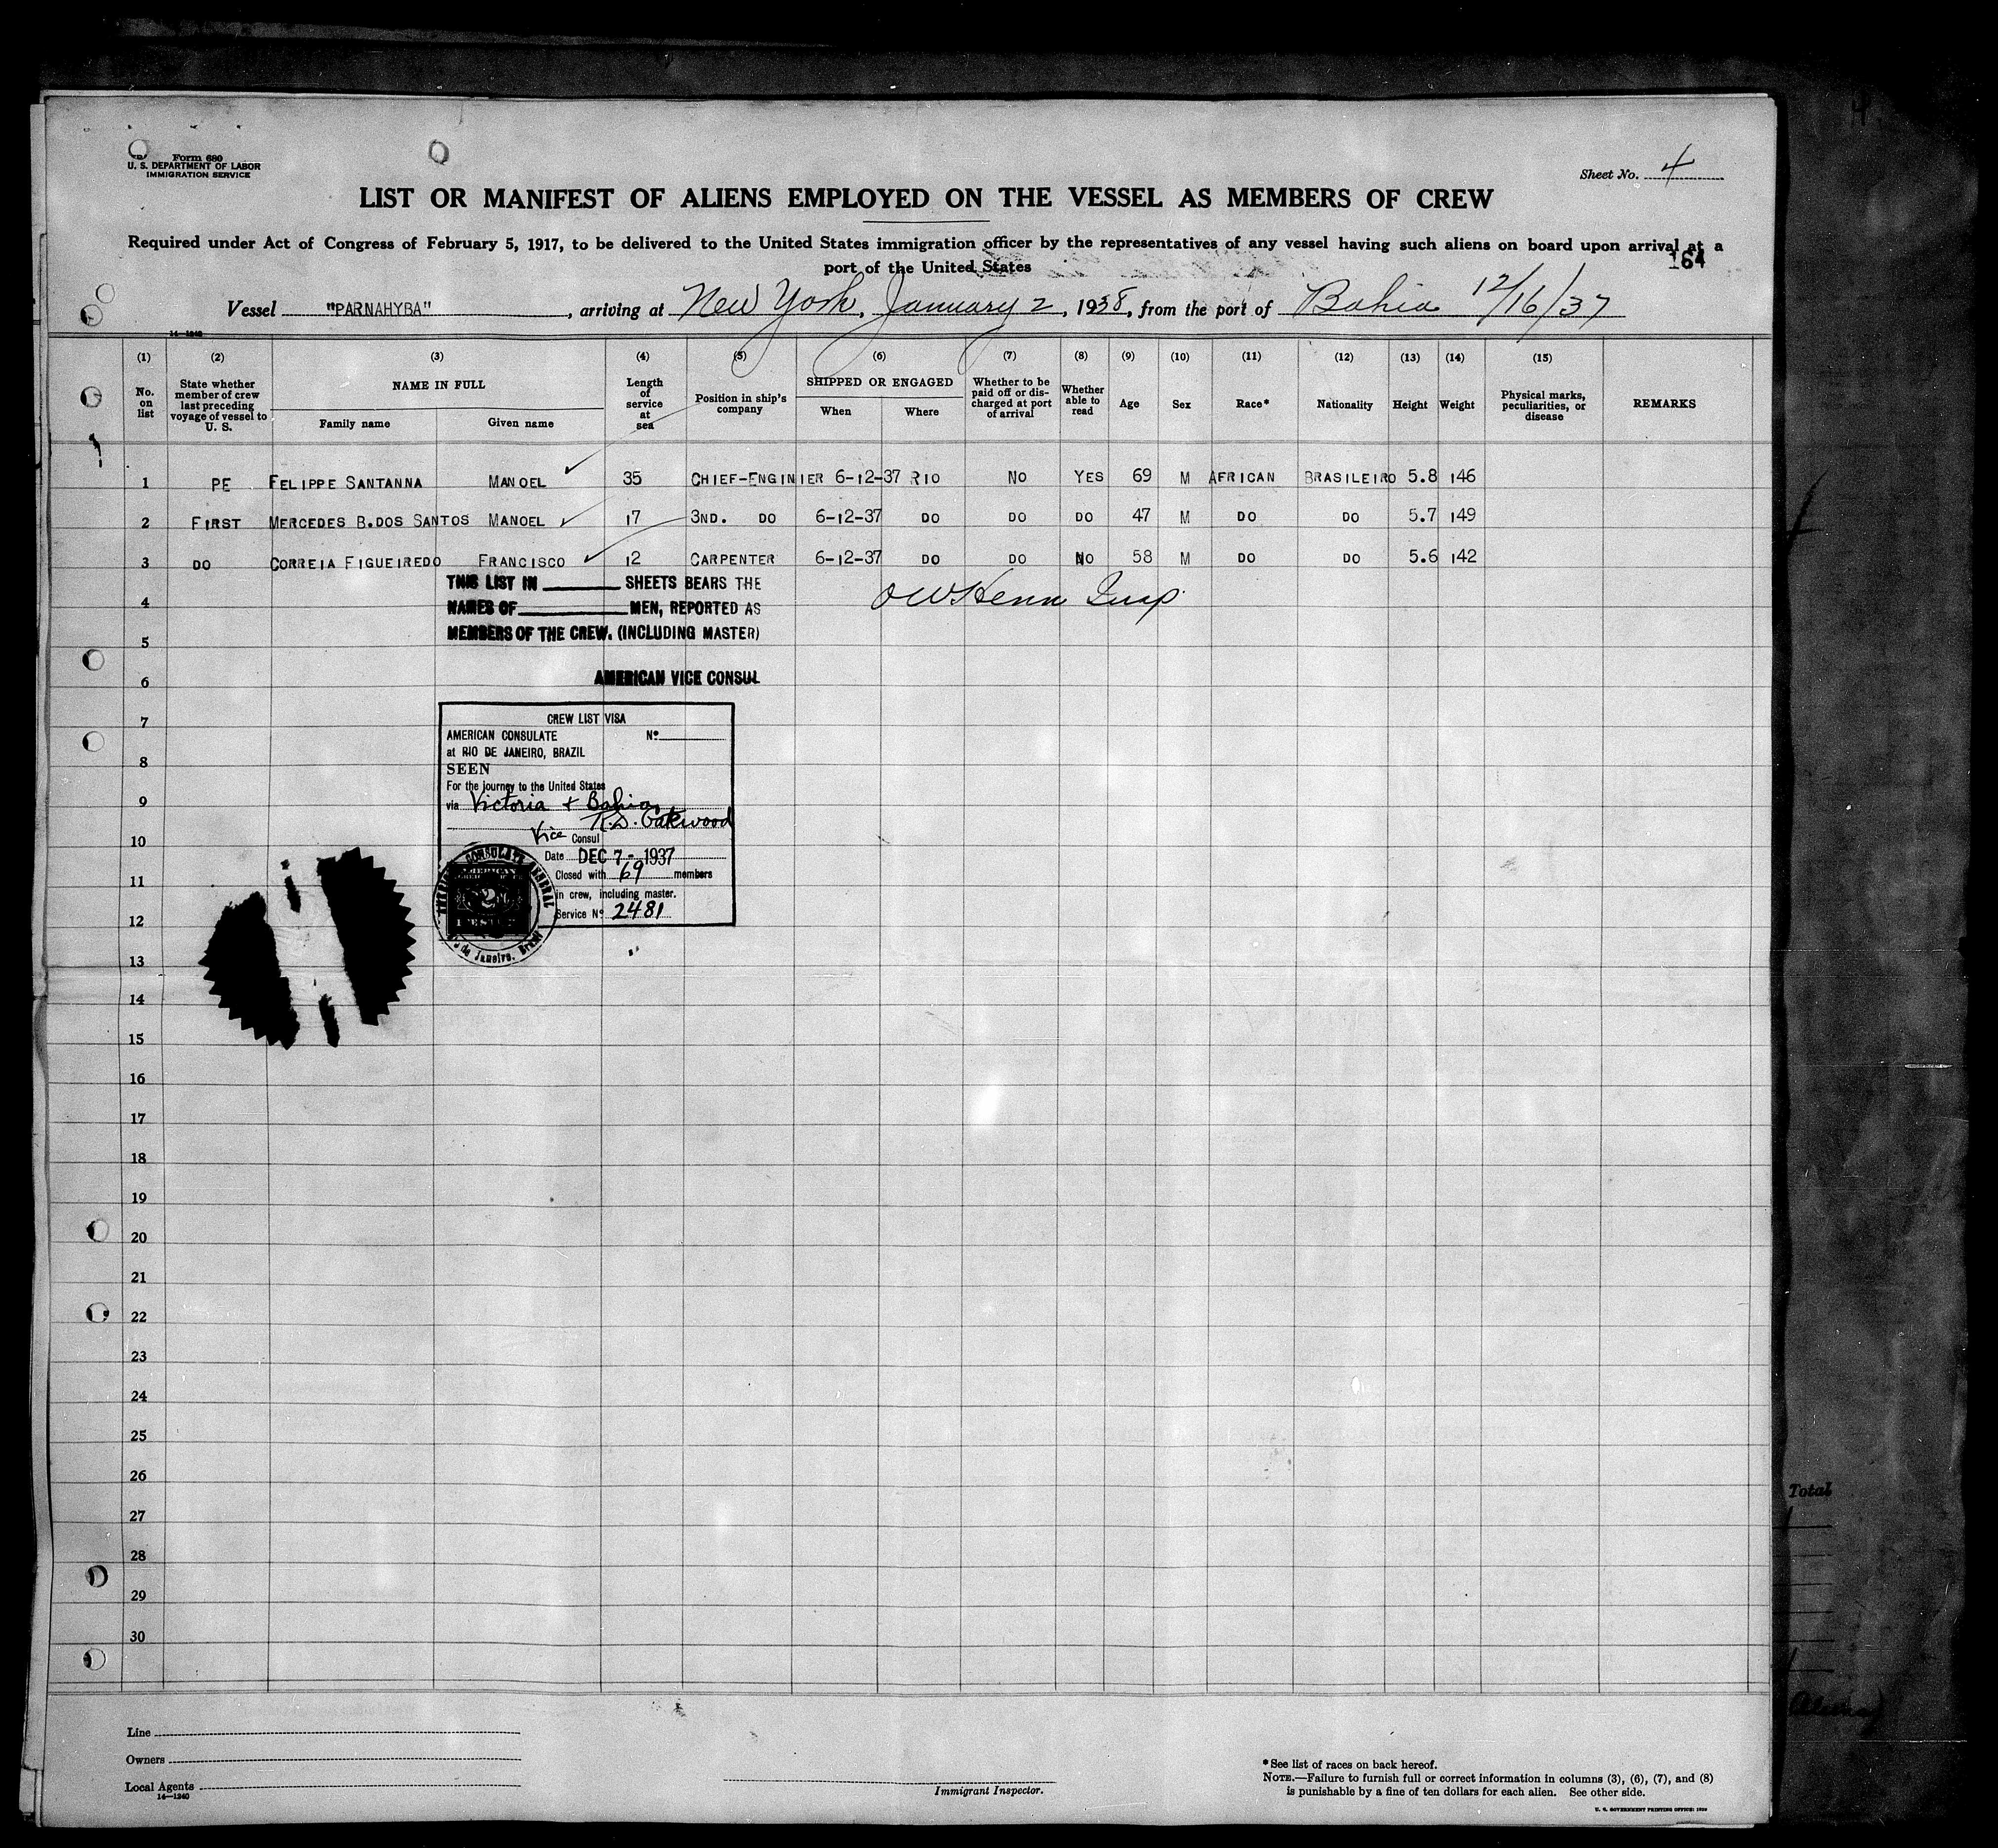 Form 680
U. S. DEPARTMENT OF LABOR
IMMIGRATION SERVICE
Sheet No. 4
LIST OR MANIFEST OF ALIENS EMPLOYED ON THE VESSEL AS MEMBERS OF CREW
Required under Act of Congress of February 5, 1917, to be delivered to the United States immigration officer by the representatives of any vessel having such aliens on board upon arrival at a
port of the United States
164
Vessel "PARNAHYBA", arriving at New York, January 2, 1938, from the port of Bahia 12/16/37
14-1240
(1) (2) (3) (4) (5) (6) (7) (8) (9) (10) (11) (12) (13) (14) (15)
No. on list
State whether member of crew last preceding voyage of vessel to U. S.
NAME IN FULL
Family name
Given name
Length of service at sea
Position in ship's company
SHIPPED OR ENGAGED
When
Where
Whether to be paid off or discharged at port of arrival
Whether able to read
Age
Sex
Race*
Nationality
Height
Weight
Physical marks, peculiarities, or disease
REMARKS
1 PE FELIPPE SANTANNA MANOEL 35 CHIEF-ENGINIER 6-12-37 RIO NO YES 69 M AFRICAN BRASILEIRO 5.8 146
2 FIRST MERCEDES B.DOS SANTOS MANOEL 17 3ND. DO 6-12-37 DO DO DO 47 M DO DO 5.7 149
3 DO CORREIA FIGUEIREDO FRANCISCO 12 CARPENTER 6-12-37 DO DO NO 58 M DO DO 5.6 142
THIS LIST IN SHEETS BEARS THE
NAMES OF MEN, REPORTED AS
MEMBERS OF THE CREW. (INCLUDING MASTER)
OW Henn Insp.
AMERICAN VICE CONSUL
CREW LIST VISA
AMERICAN CONSULATE No
at RIO DE JANEIRO, BRAZIL
SEEN
For the journey to the United States
via Victoria + Bahia
R.S. Oakwood
Vice Consul
Date DEC 7 - 1937
Closed with 69 members
in crew, including master.
Service No 2481
CONSULATE GENERAL
AMERICAN
2
Rio de Janeiro, Brasil
4
5
6
7
8
9
10
11
12
13
14
15
16
17
18
19
20
21
22
23
24
25
26
27
28
29
30
Total
Line
Owners
Local Agents
14-1240
Immigrant Inspector.
*See list of races on back hereof.
NOTE.—Failure to furnish full or correct information in columns (3), (6), (7), and (8)
is punishable by a fine of ten dollars for each alien. See other side.